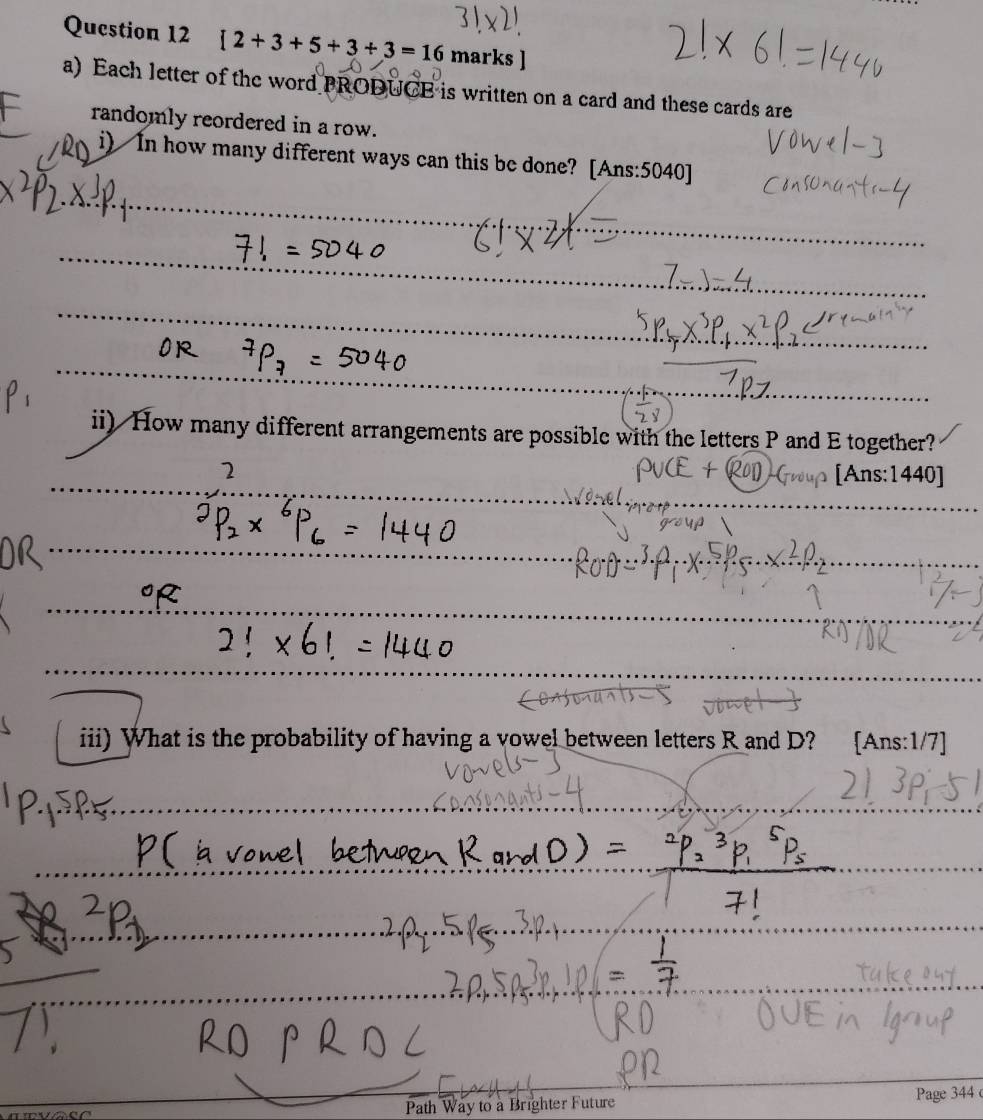 3!×2!
Question 12 [ 2 + 3 + 5 + 3 + 3 = 16 marks ]
2!× 6! = 1440
a) Each letter of the word PRODUCE is written on a card and these cards are
randomly reordered in a row.
Vowel-3
i) In how many different ways can this be done? [Ans:5040]
Consonants-4
×²P₂×³P₁
7! = 5040
6! × 2! =
⁵P₅×³P₁×²P₂
OR ⁷P₇ = 5040
7P7
1/28
P₁
ii) How many different arrangements are possible with the letters P and E together?
PUCE + ROD - Group [Ans:1440]
2
Vowel group
²P₂ × ⁶P₆ = 1440
OR
ROD = ³P₁ × ⁵P₅ × ²P₂
OR
RD/DR
2! × 6! = 1440
consonants-5 vowel-3
iii) What is the probability of having a vowel between letters R and D? [Ans:1/7]
vowels-3
consonants-4
2! 3P₁ 5!
¹P₁⁵P₅
P( a vowel between R and D) = ²P₂ ³P₁ ⁵P₅
7!
²P₂
2P₂ 5P₅ ³P₁
= 1/7
take out
OUE in 1group
7!
RD P R D C
RD
Path Way to a Brighter Future
Page 344